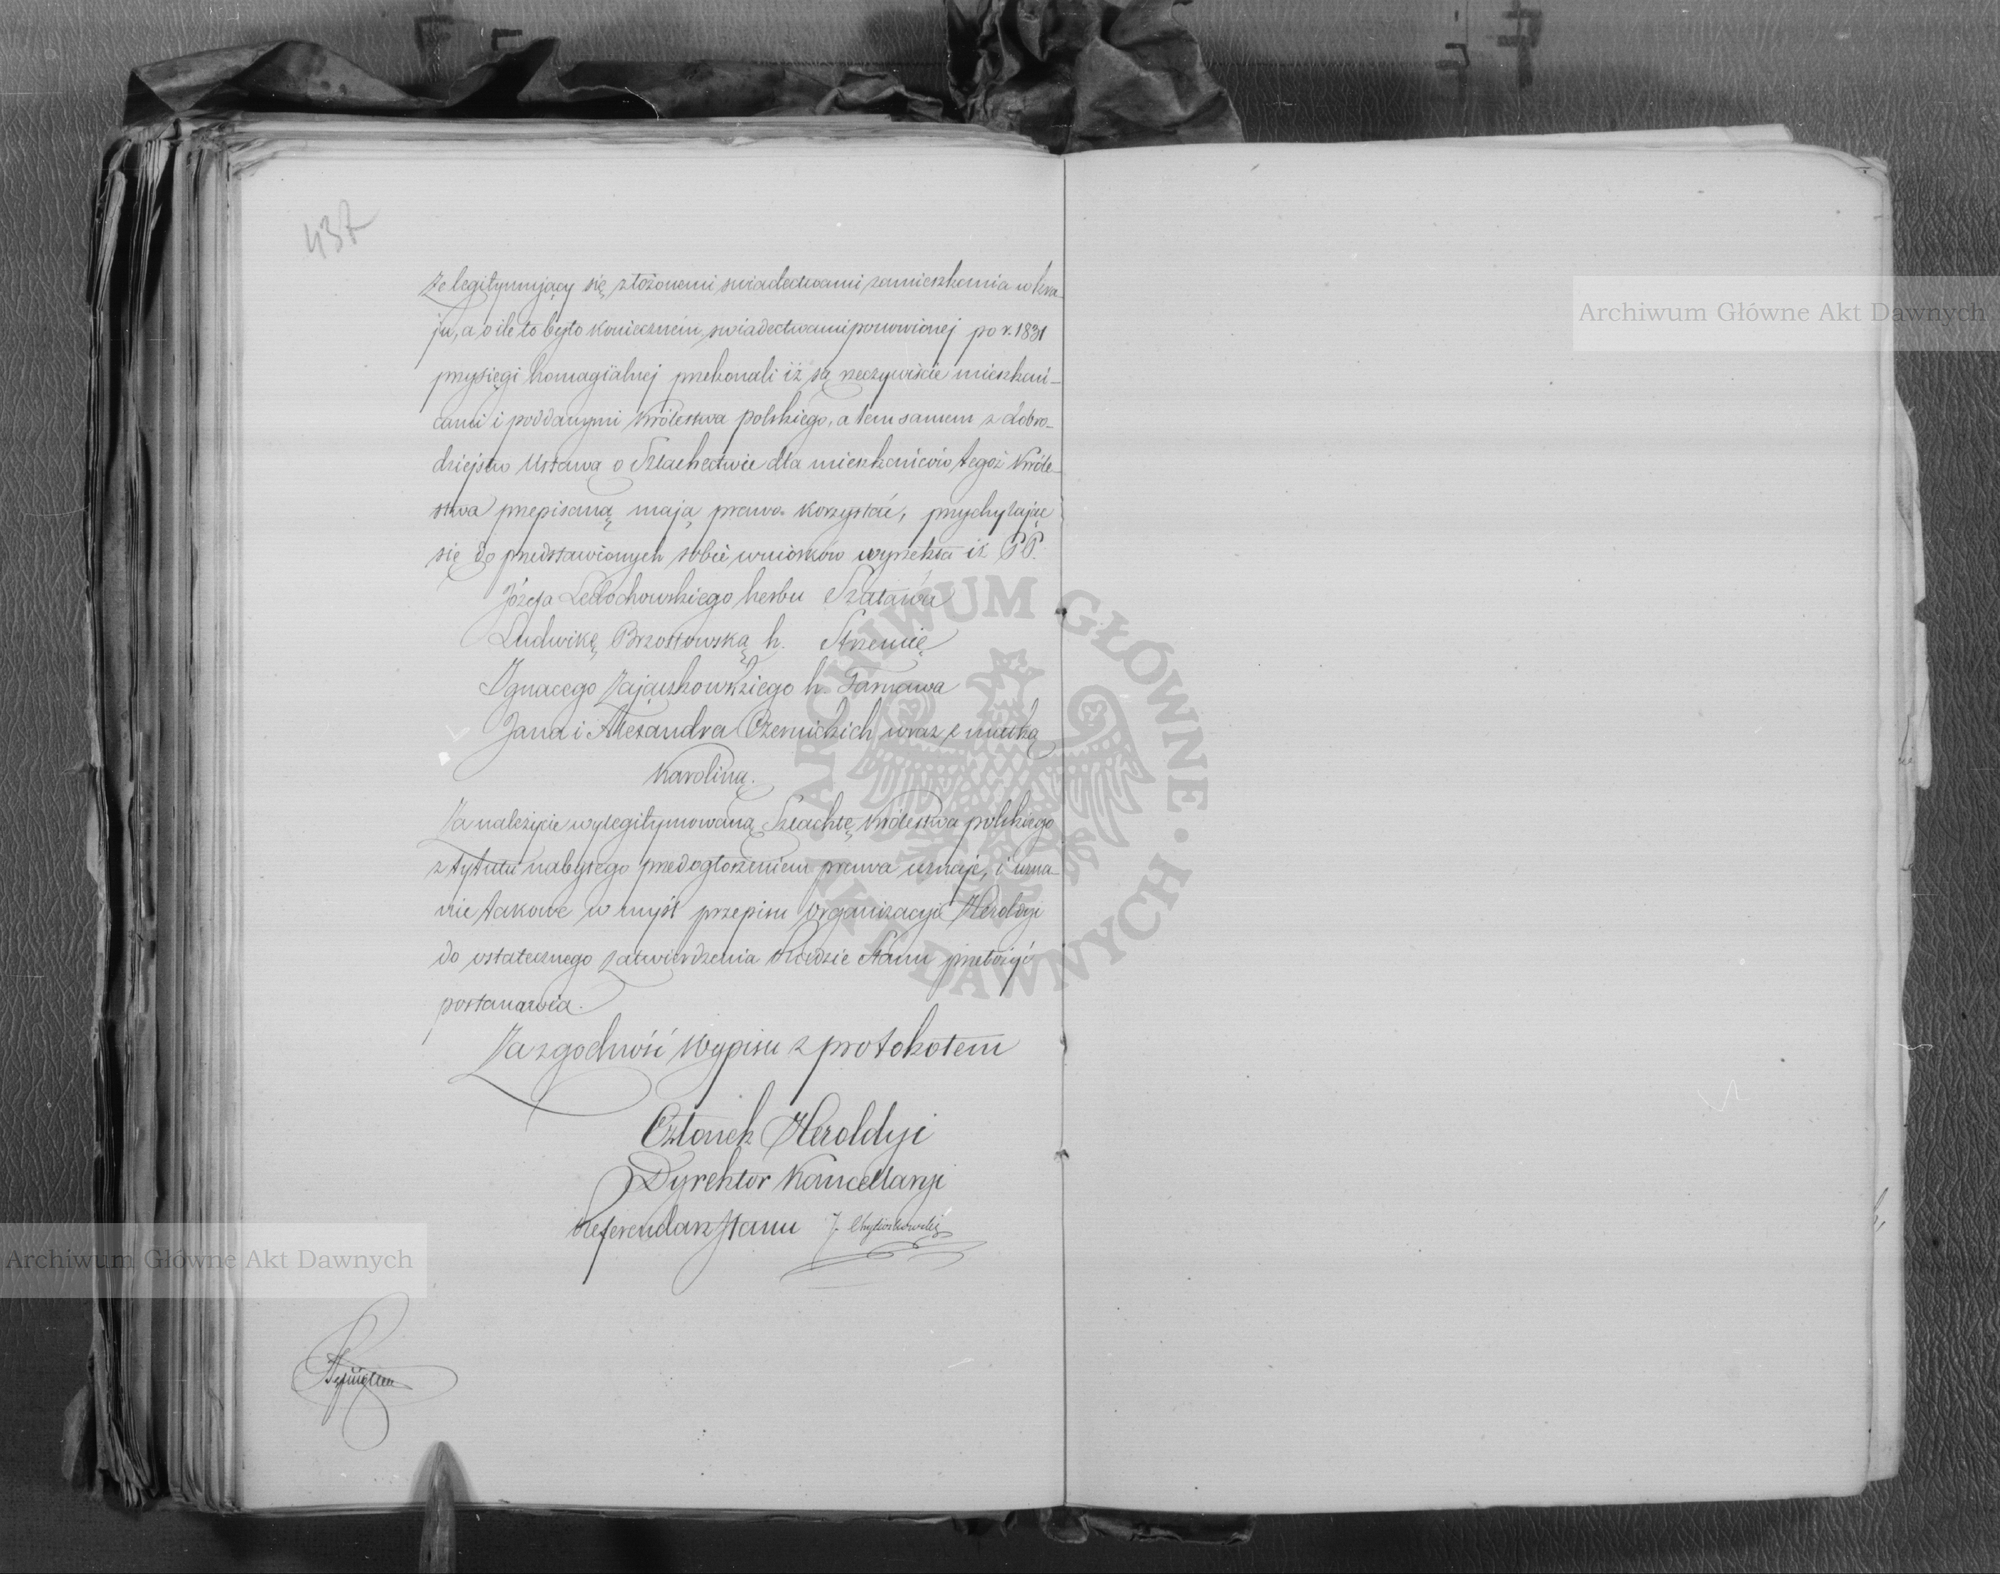 437
że legitymujący się złożonemi świadectwami zamieszkania w kra-
ju, a o ile to było koniecznem, świadectwami ponowionej po r. 1831
przysięgi homagialnej przekonali iż są rzeczywiście mieszkań-
cami i poddanymi Królestwa polskiego, a tem samem z dobro-
dziejstw Ustawą o Szlachectwie dla mieszkańców tegoż Króle-
stwa przepisaną mają prawo korzystać, przychylając
się do przedstawionych sobie wniosków wyrzekła iż PP.
Józefa Ledochowskiego herbu Szaława
Ludwikę Brzostowską h. Strzemię
Ignacego Zajączkowskiego h. Tarnawa
Jana i Alexandra Czernickich wraz z matką
Karoliną.
Za należycie wylegitymowaną Szlachtę Królestwa polskiego
z tytułu nabytego przed ogłoszeniem prawa uznaje, i uzna-
nie takowe w myśl przepisu organizacyi Heroldyi
do ostatecznego zatwierdzenia Radzie Stanu przełożyć
postanawia.
Za zgodność Wypisu z protokołem
Członek Heroldyi
Dyrektor Kancellaryi
Referendarz Stanu J.
Archiwum Główne Akt Dawnych
Archiwum Główne Akt Dawnych
ARCHIWUM GŁÓWNE AKT DAWNYCH